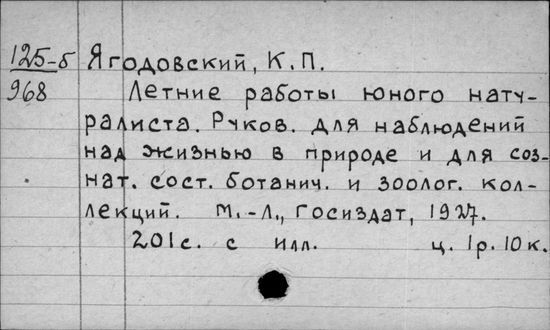 125-б Ягодовский, К.П.
968 Летние работы юного нату-
ралиста. Руков. для наблюдений
над жизнью в природе и для соз-
нат. сост. ботанич. и зоолог. кол-
лекций. М.-Л., Госиздат, 1927.
201с. с илл. ц. 1р. 10к.